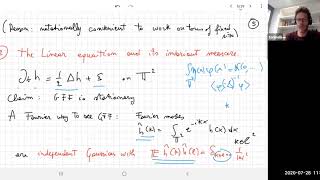 (Reason: notationally convenient to work on torus of fixed size) ③
② The Linear equation and its invariant measure
∂ₜ h = ½ Δ h + ξ on 𝕋²
Claim: GFF is stationary
A Fourier way to see GFF: Fourier modes
ĥ(k) = ∫_{𝕋²} e^{-ikx} h(x) dx
k∈ℤ²
are independent Gaussians with 𝔼 ĥ(k) ĥ(k')
2020-07-28